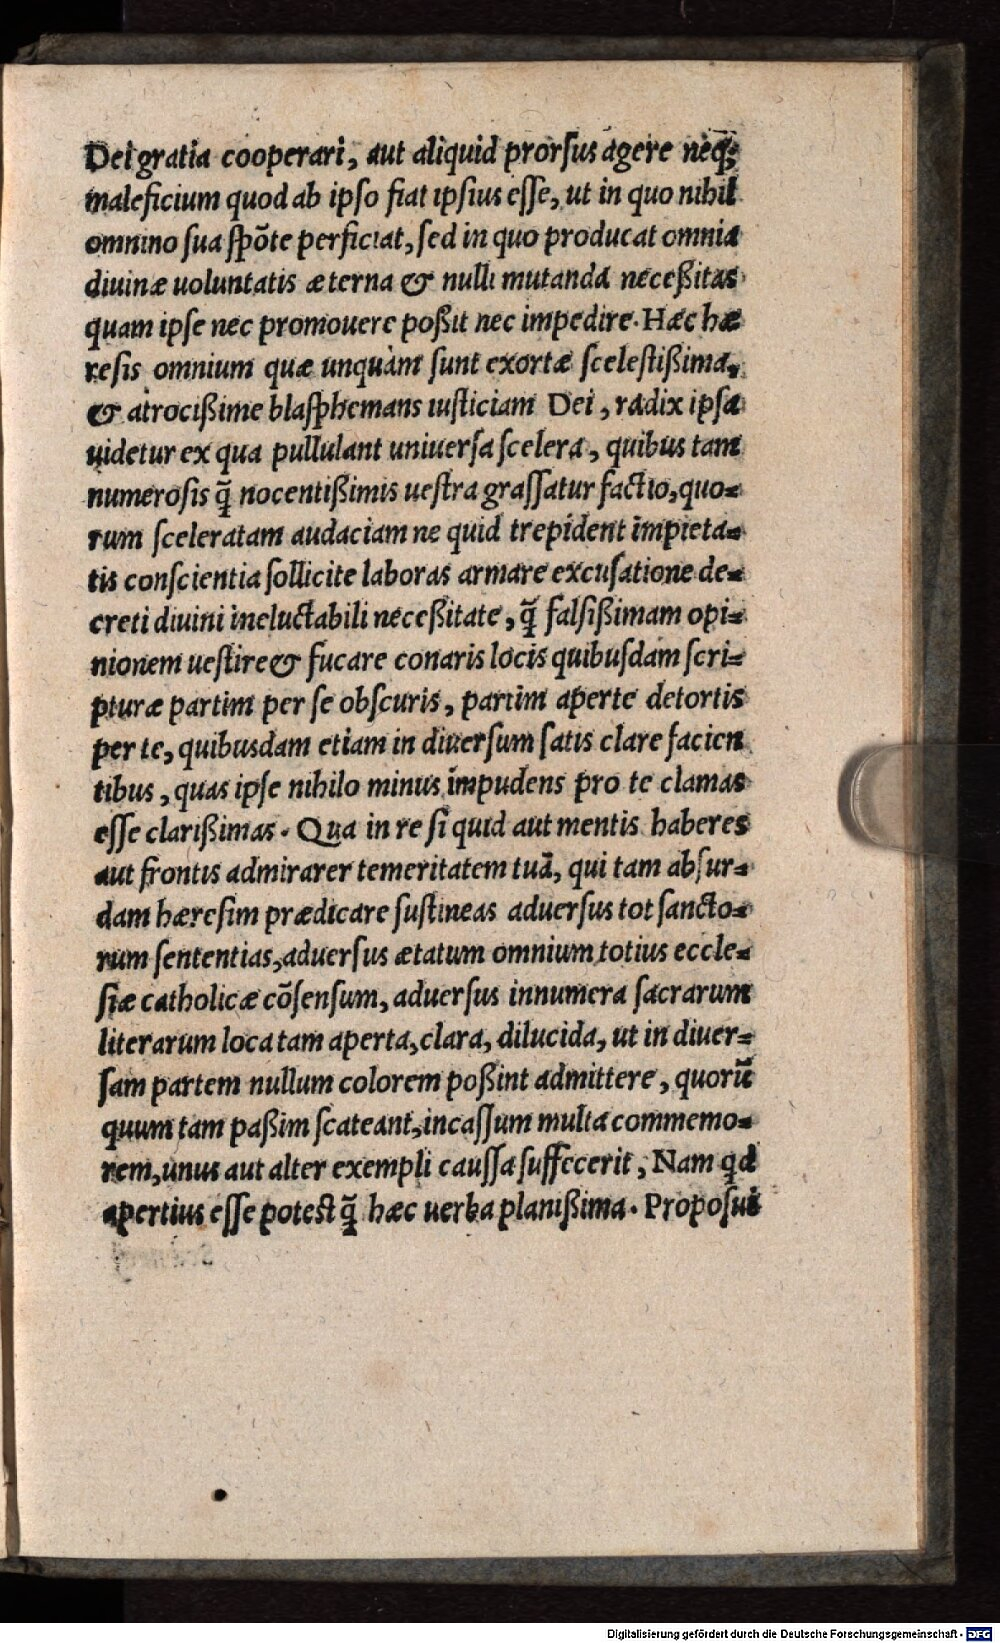 Dei gratia cooperari, aut aliquid prorſus agere neq;
maleficium quod ab ipſo fiat ipſius eſſe, ut in quo nihil
omnino ſua ſpõte perficiat, ſed in quo producat omnia
diuinæ uoluntatis æterna & nulli mutanda neceßitas
quam ipſe nec promouere poßit nec impedire. Hæc hæ
reſis omnium quæ unquàm ſunt exortæ ſceleſtißima,
& atrocißime blaſphemans iuſticiam Dei, radix ipſa
uidetur ex qua pullulant uniuerſa ſcelera, quibus tam
numeroſis q̃ nocentißimis ueſtra graſſatur factio, quo=
rum ſceleratam audaciam ne quid trepident impieta=
tis conſcientia ſollicite laboras armare excuſatione de=
creti diuini ineluctabili neceßitate, q̃ falſißimam opi=
nionem ueſtire & fucare conaris locis quibuſdam ſcri=
pturæ partim per ſe obſcuris, partim aperte detortis
per te, quibusdam etiam in diuerſum ſatis clare facien
tibus, quas ipſe nihilo minus impudens pro te clamas
eſſe clarißimas. Qua in re ſi quid aut mentis haberes
aut frontis admirarer temeritatem tuã, qui tam abſur=
dam hæreſim prædicare ſuſtineas aduerſus tot ſancto=
rum ſententias, aduerſus ætatum omnium totius eccle=
ſiæ catholicæ cõſenſum, aduerſus innumera ſacrarum
literarum loca tam aperta, clara, dilucida, ut in diuer=
ſam partem nullum colorem poßint admittere, quorũ
quum tam paßim ſcateant, incaſſum multa commemo=
rem, unus aut alter exempli cauſſa ſuffecerit, Nam qd
apertius eſſe poteſt q̃ hæc uerba planißima. Propoſui
Digitalisierung gefördert durch die Deutsche Forschungsgemeinschaft - DFG